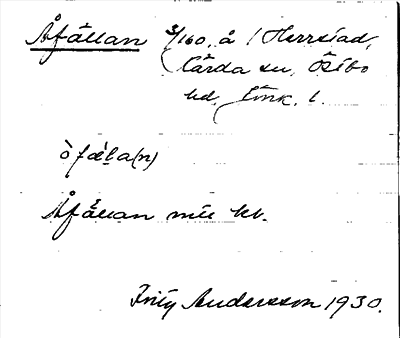 Åfällan 3/160, å 1 Herrstad,
Kärda sn, Östbo
hd, Jönk. l.
ò fæla(n)
Åfällan mtl kb.
Fritz Andersson 1930.